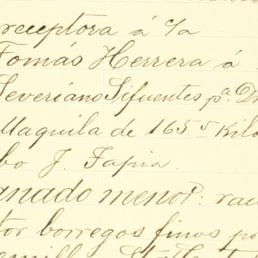 receptora á c/a
Tomás Herrera á
Severiano Sifuentes pa. D
Maquila de 165 5 Kilo
bo J. Tapia.
anado menor: rac
tor borregos finos po